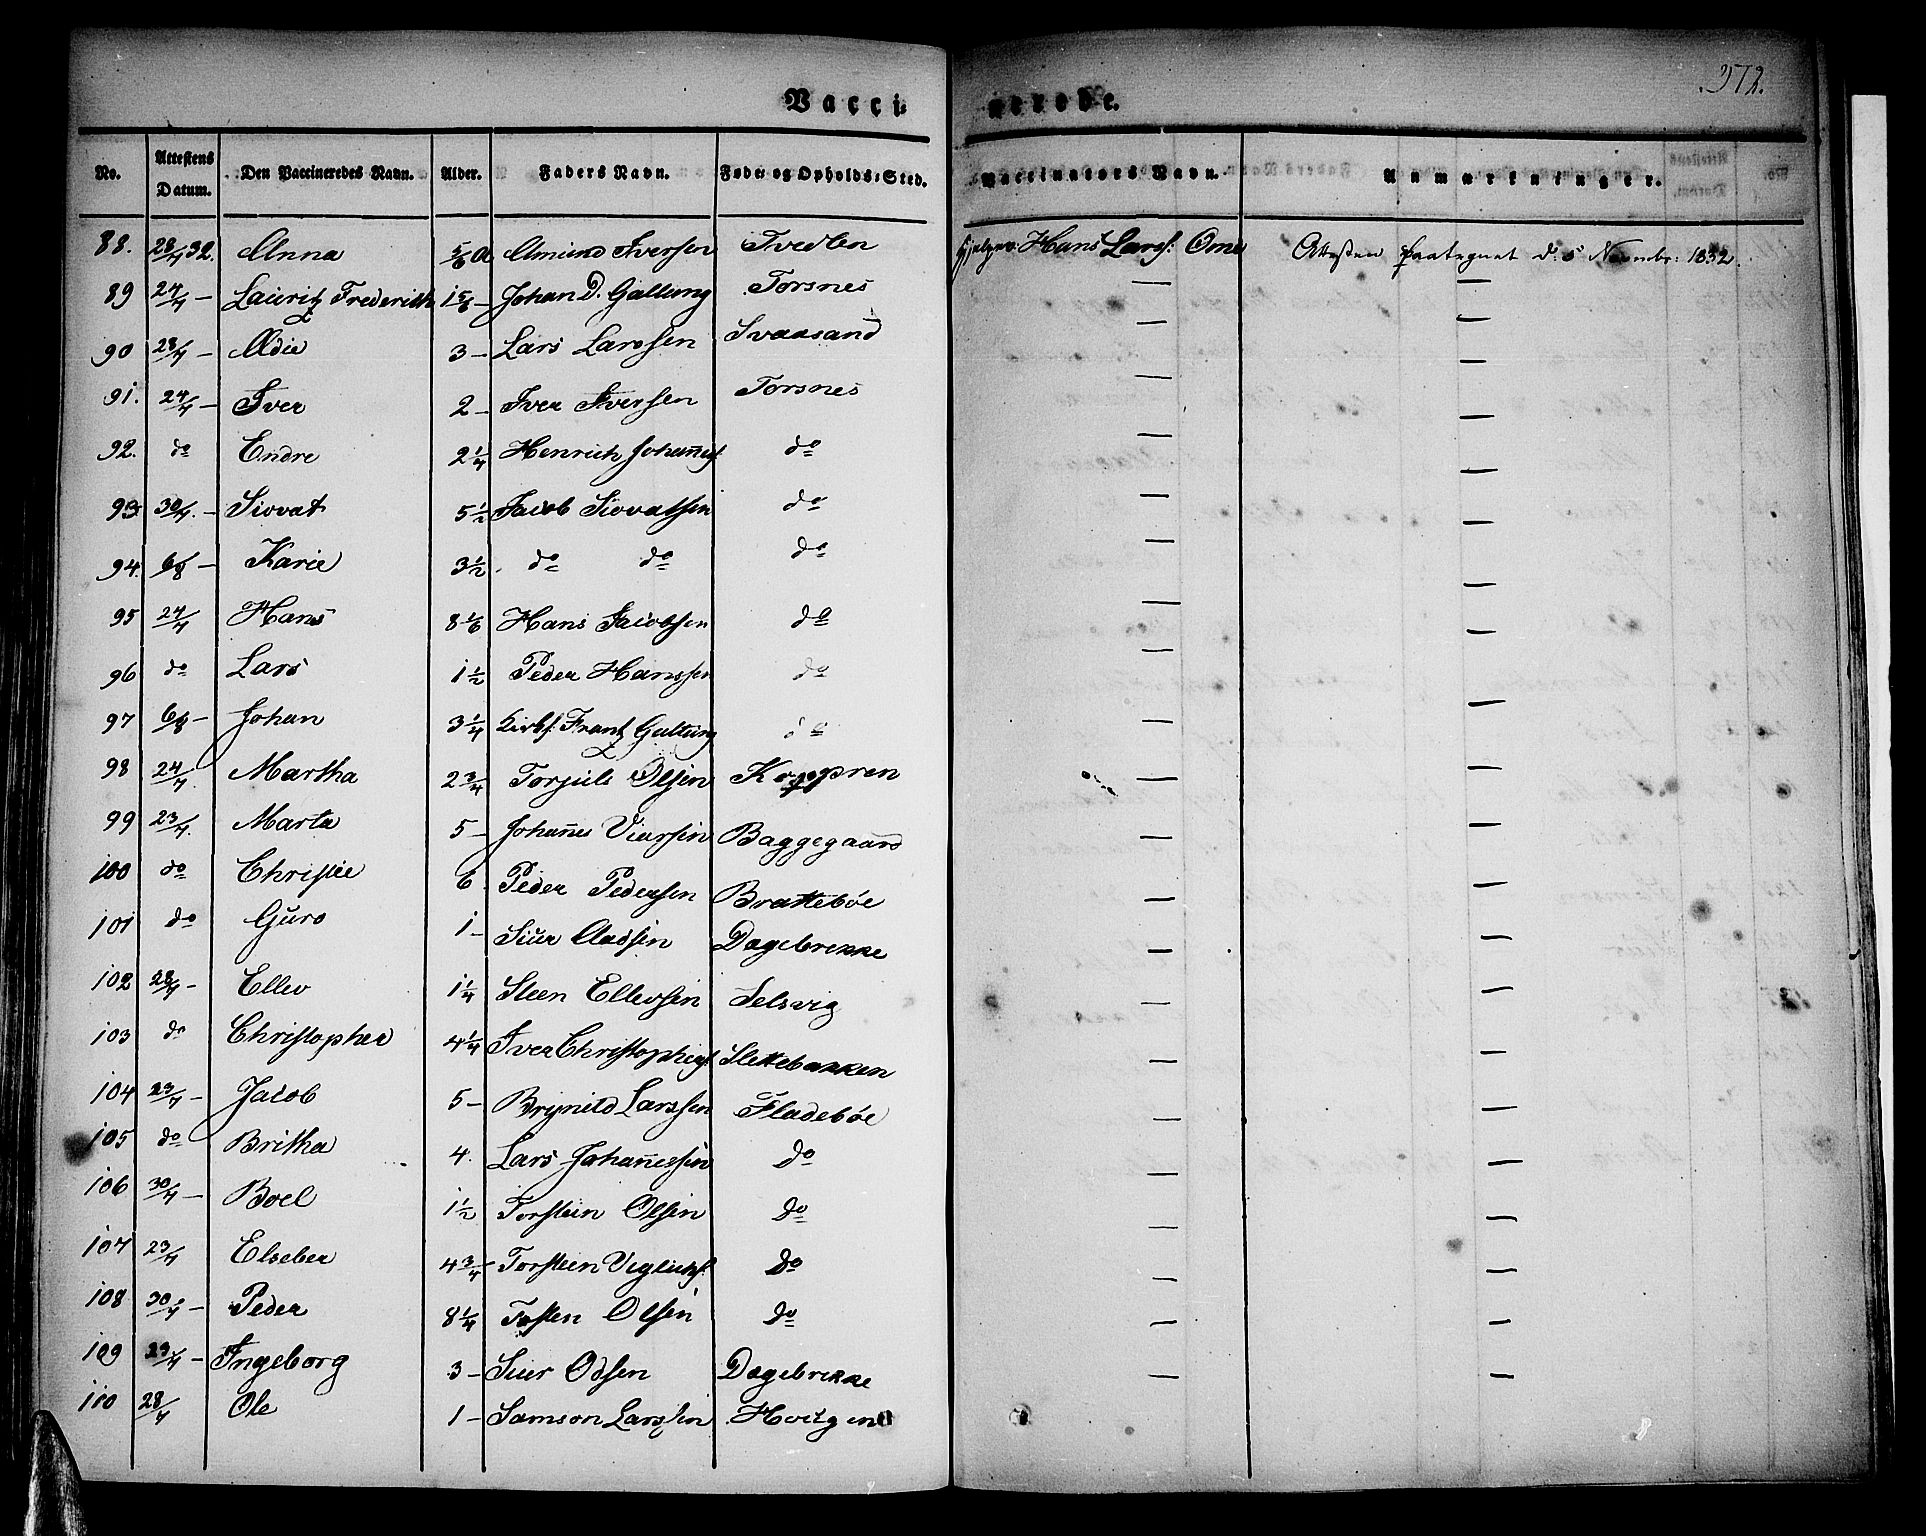 Vacci- nerede. 372.
No. Attestens Datum. Den Vaccineredes Navn. Alder. Faders Navn. Føde- og Opholds-Sted. Vaccinators Navn. Anmærkninger.
88. 28/7 32. Anna 5/6 A Amund Iversen Tvedten Hans Larss: Ome Attesten paategnet d. 5 Novembr: 1832.
89 24/7 – Lauritz Frederich 1 5/6 – Johan D. Galtung Torsnes — —
90 28/7 – Adie 3 – Lars Larssen Svaasand — —
91. 24/7 – Iver 2 – Iver Iversen Torsnes — —
92. do Endre 2 1/4 Henrich Johanness: do — —
93 30/7. – Siovat 5 1/2 Jacob Siovatsen do — —
94. 6/8 – Karie 3 1/2 do do do — —
95 24/7 Hans 8 1/6 Hans Jacobsen do — —
96 do Lars 1 1/2 Peder Hanssen do — —
97 6/8 – Johan 3 1/4 Frantz Galtung do — —
98 24/7. Martha 2 3/4 Torjuls Olsen — —
99 23/7. Marta 5 – Johannes Viursen Baggegaard — —
100 do Christie 6. Peder Pedersen Brattebøe — —
101 do Guro 1 – Siur Aadsen Dagebrekke — —
102 28/7 – Ellev 1 1/4 Steen Ellevsen Selsvig — —
103 do Christopher 4 1/4 Iver Christophers: Slettebakken — —
104 23/7 – Jacob 5 – Brynild Larssen Fladebøe — —
105 do Britha 4. Lars Johannessen do — —
106 30/7 – Boel 1 1/2 Torstein Olsen do — —
107 23/7 Elseber 4 3/4 Torsteen Viglichs: do — —
108 30/7 – Peder 8 1/4 Tosten Olsen do — —
109 23/7 – Ingeborg 3 – Siur Odsen Dagebrekke — —
110 28/7 Ole 1 – Samson Larssen